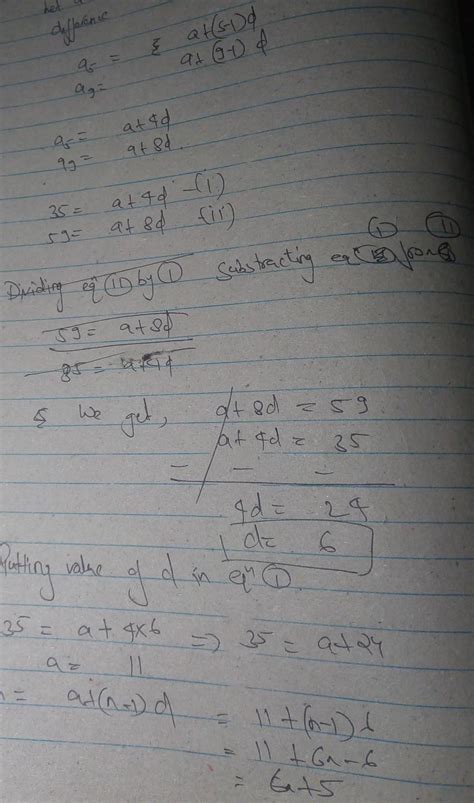 difference
a5 = a+(5-1)d
a9 = a+(9-1)d
a5 = a+4d
a9 = a+8d
35 = a+4d -(i)
59 = a+8d (ii)
Dividing eqn (II) by (I) Substracting eqn (I) from (II)
59 = a+8d
35 = a+4d
& We get, a+8d = 59
a+4d = 35
- - -
4d = 24
d = 6
Putting value of d in eqn (I).
35 = a+4×6 => 35 = a+24
a = 11
= a+(n-1)d = 11+(n-1)6
= 11+6n-6
= 6n+5